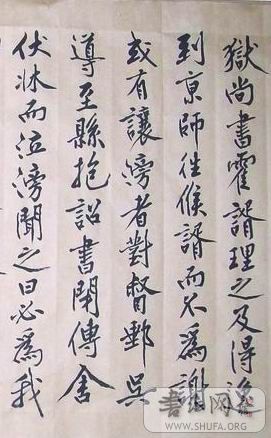 獄尚書霍諝理之及得免
到京師往候諝而不為謝
或有讓滂者對督郵吳
導至縣抱詔書閉傳舍
伏牀而泣滂聞之曰必為我
WWW.SHUFA.ORG